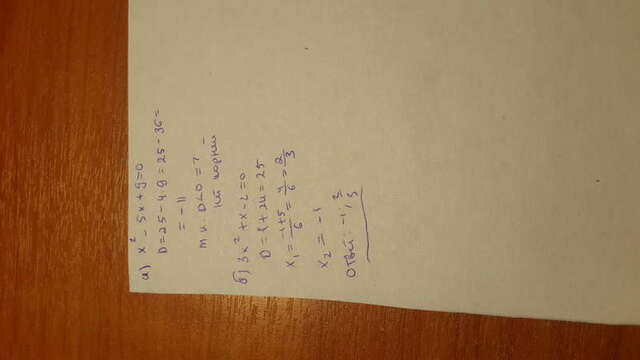 а) x² - 5x + 9 = 0
D = 25 - 4·9 = 25 - 36 =
= -11
т.к. D<0 =>
нет корней
б) 3x² + x - 2 = 0
D = 1 + 24 = 25
x₁ = \frac{-1+5}{6} = \frac{4}{6} = \frac{2}{3}
x₂ = -1
Ответ: -1; \frac{2}{3}